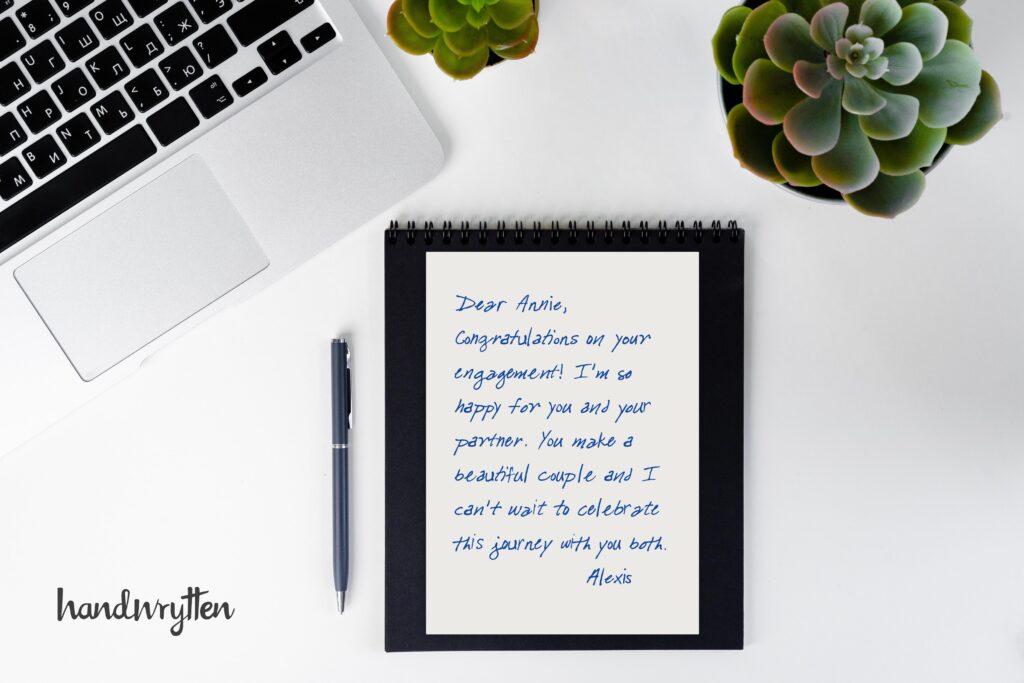 Dear Annie,
Congratulations on your
engagement! I'm so
happy for you and your
partner. You make a
beautiful couple and I
can't wait to celebrate
this journey with you both.
Alexis
handwrytten